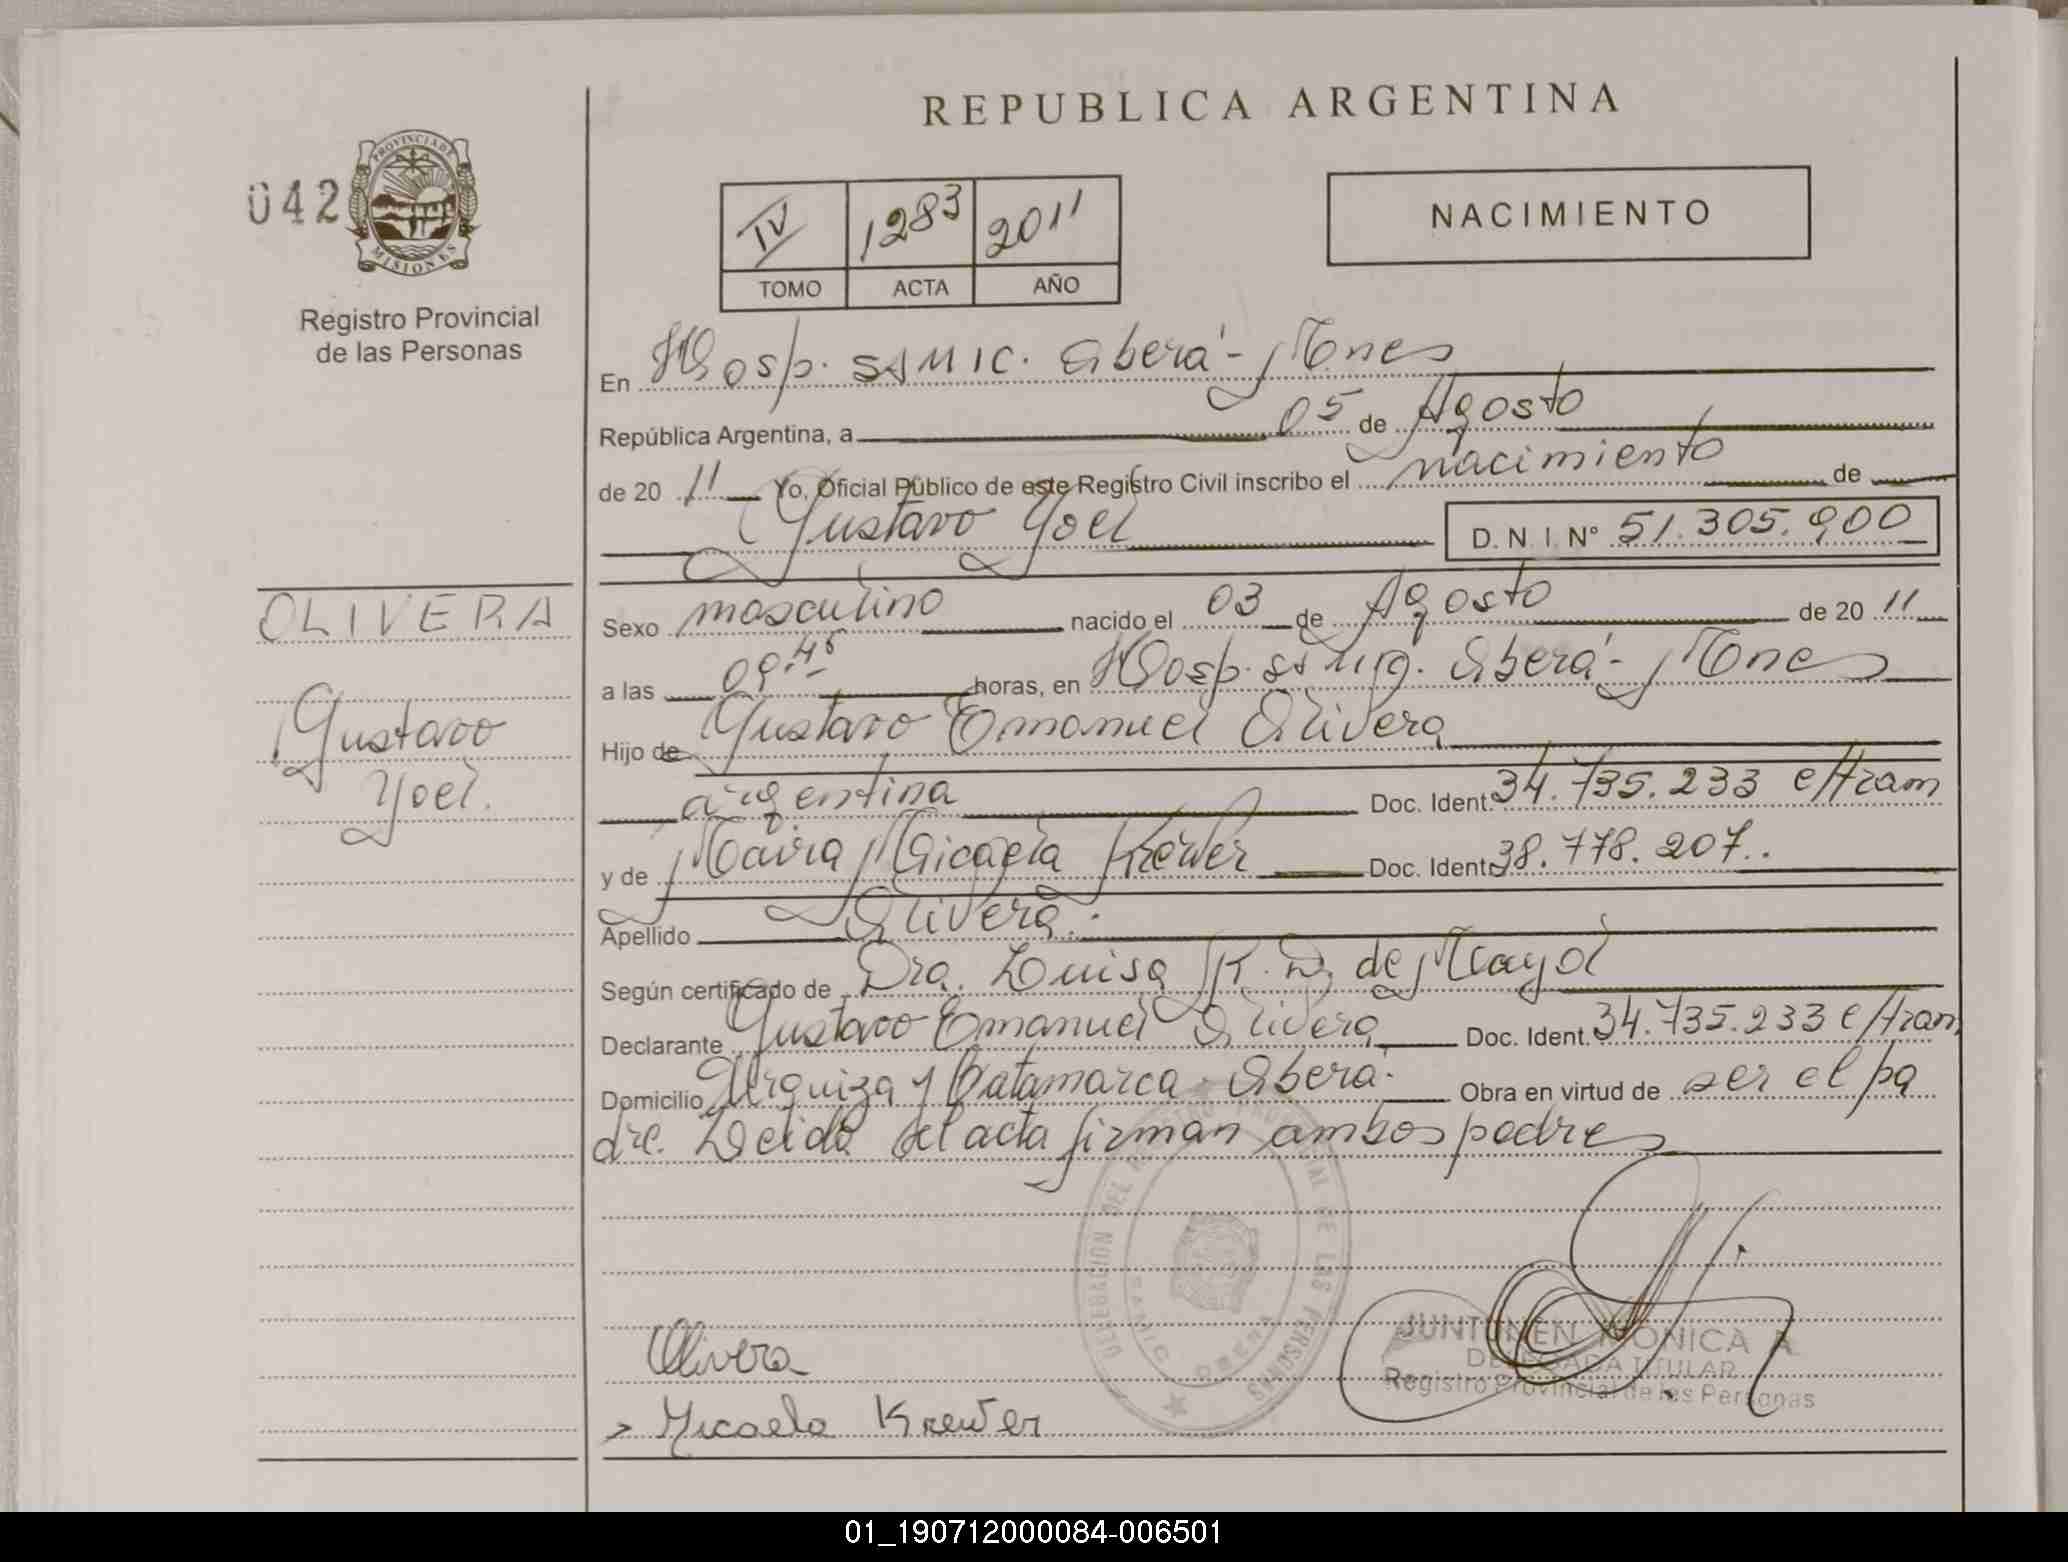 REPUBLICA ARGENTINA
042
PROVINCIA DE
MISIONES
Registro Provincial
de las Personas
IV 1283 2011
TOMO ACTA AÑO
NACIMIENTO
En Hosp. SAMIC. Oberá - Mnes
República Argentina, a 05 de Agosto
de 20 11 Yo, Oficial Público de este Registro Civil inscribo el nacimiento de
Gustavo Yoel
D. N. I. Nº 51.305.900
OLIVERA
Gustavo
Yoel.
Sexo masculino nacido el 03 de Agosto de 20 11
a las 09.45 horas, en Hosp. Oberá - Mnes
Hijo de Gustavo Emanuel Olivera
argentina Doc. Ident. 34.735.233 e/tram
y de Maira Micaela Krewer Doc. Ident. 38.778.207.
Apellido Olivera.
Según certificado de Dra. Luisa K. D. de Mayol
Declarante Gustavo Emanuel Olivera Doc. Ident. 34.735.233 e/tram
Domicilio Urquiza y Catamarca - Oberá. Obra en virtud de ser el pa
dre. Leida el acta firman ambos padres
DELEGACION DEL REGISTRO PROVINCIAL DE LAS PERSONAS
SAMIC OBERA
Olivera
Micaela Krewer
JUNTUNEN MONICA A
DELEGADA TITULAR
Registro Provincial de las Personas
01_190712000084-006501